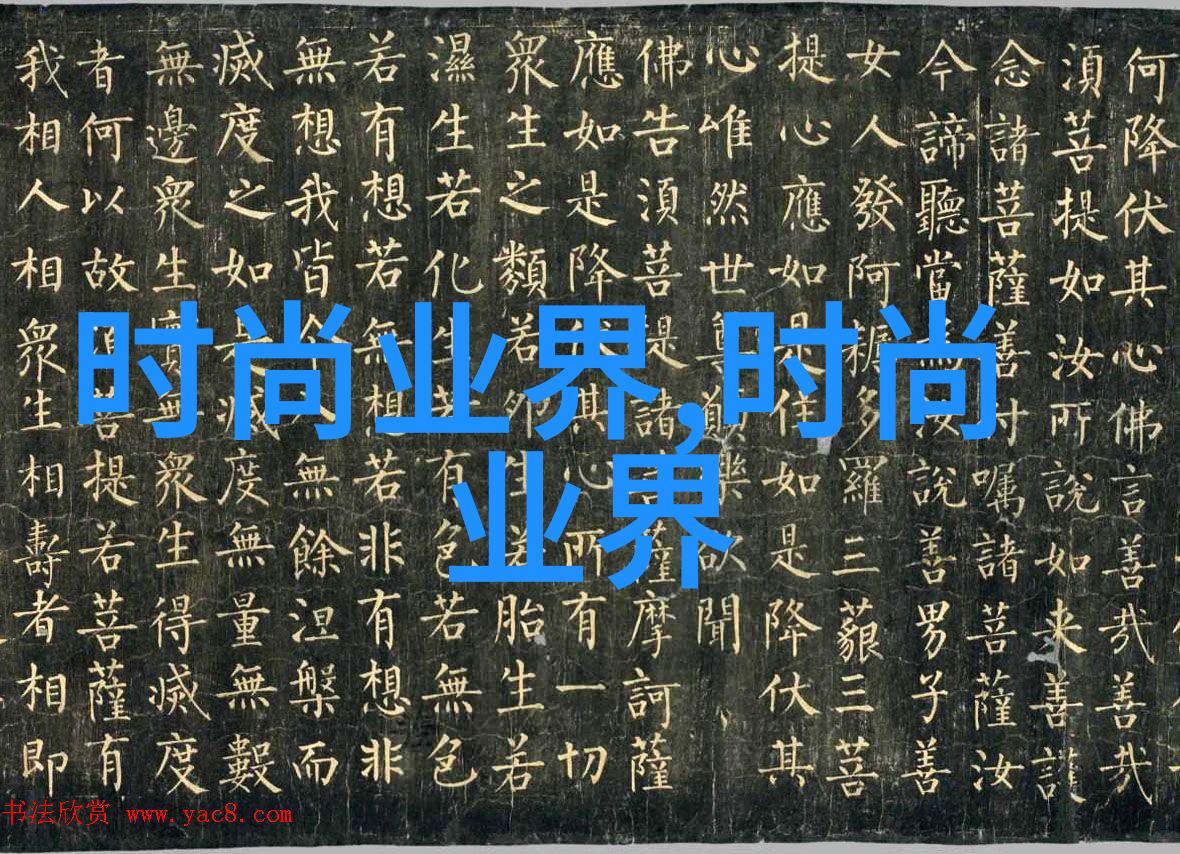 何降伏其心佛言善哉善哉
湏菩提如汝所說如来善護
念諸菩薩善付嘱諸菩薩汝
今諦聽當為汝說善男子善
女人發阿耨多羅三藐三菩
提心應如是住如是降伏其
心唯然世尊願樂欲聞
佛告湏菩提諸菩薩摩訶薩
應如是降伏其心所有一切
衆生之類若卵生若胎生若
濕生若化生若有色若無色
若有想若無想若非有想非
無想我皆令入無餘涅槃而
滅度之如是滅度無量無數
無邊衆生實無衆生得滅度
者何以故湏菩提若菩薩有
我相人相衆生相壽者相即
时尚业界,时尚
业界
书法欣赏 www.yac8.com